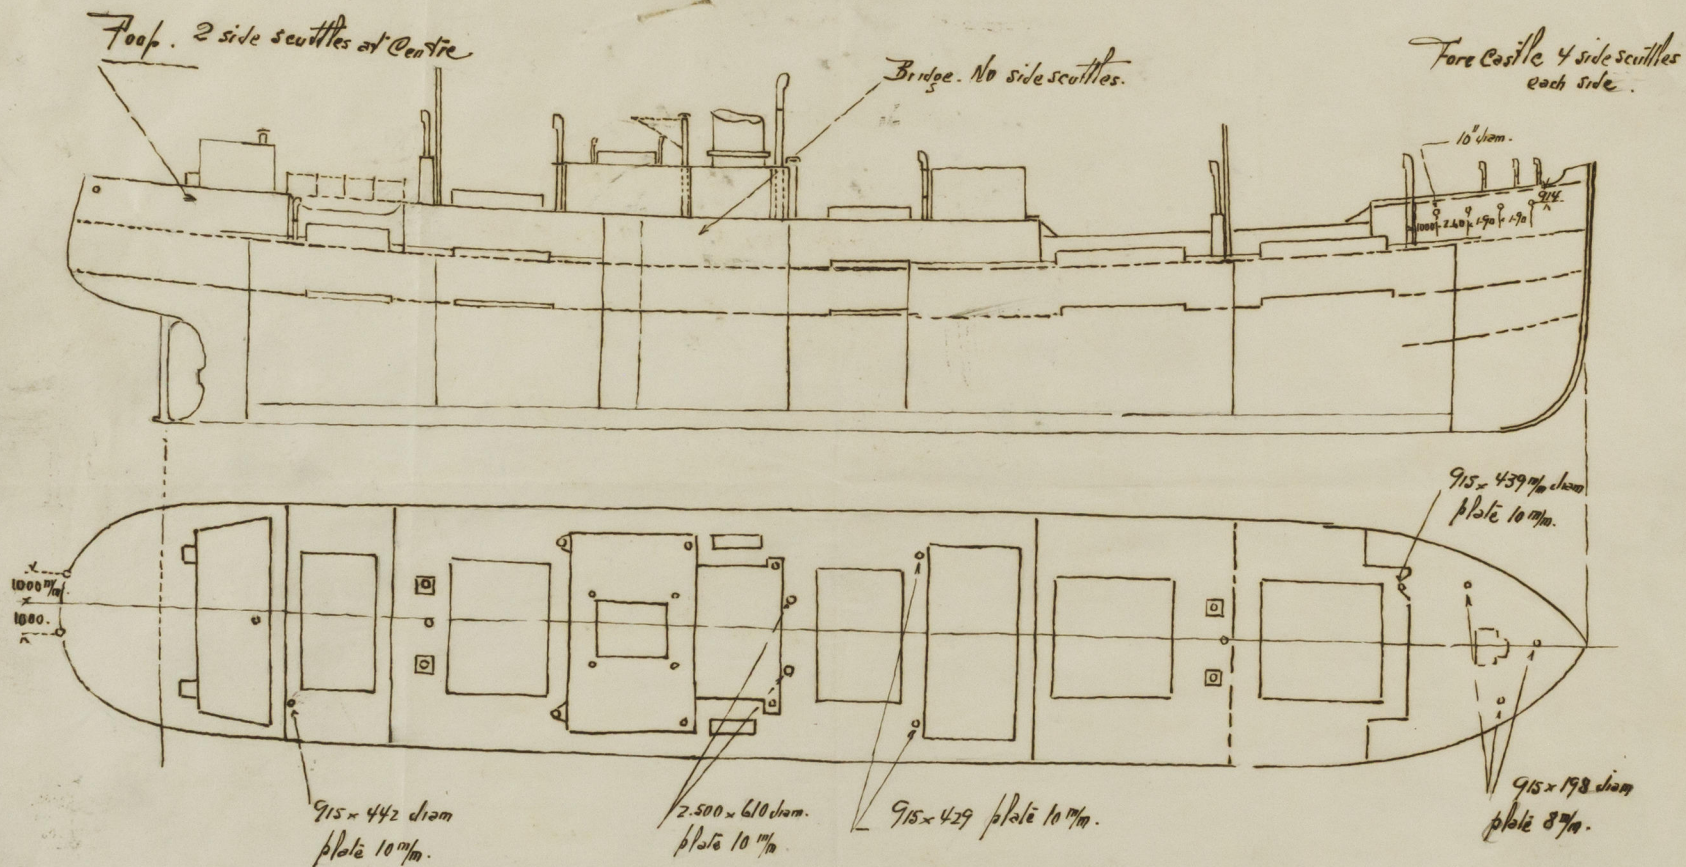 Poop. 2 side scuttles at Centre
Bridge. No side scuttles.
Fore Castle 4 side scuttles
each side.
10" diam.
914
1000 2.40 1.90 1.90
915 x 439 m/m diam
plate 10 m/m.
1000 m/m
1000.
915 x 442 diam
plate 10 m/m.
2.500 x 610 diam.
plate 10 m/m.
915 x 429 plate 10 m/m.
915 x 198 diam
plate 8 m/m.